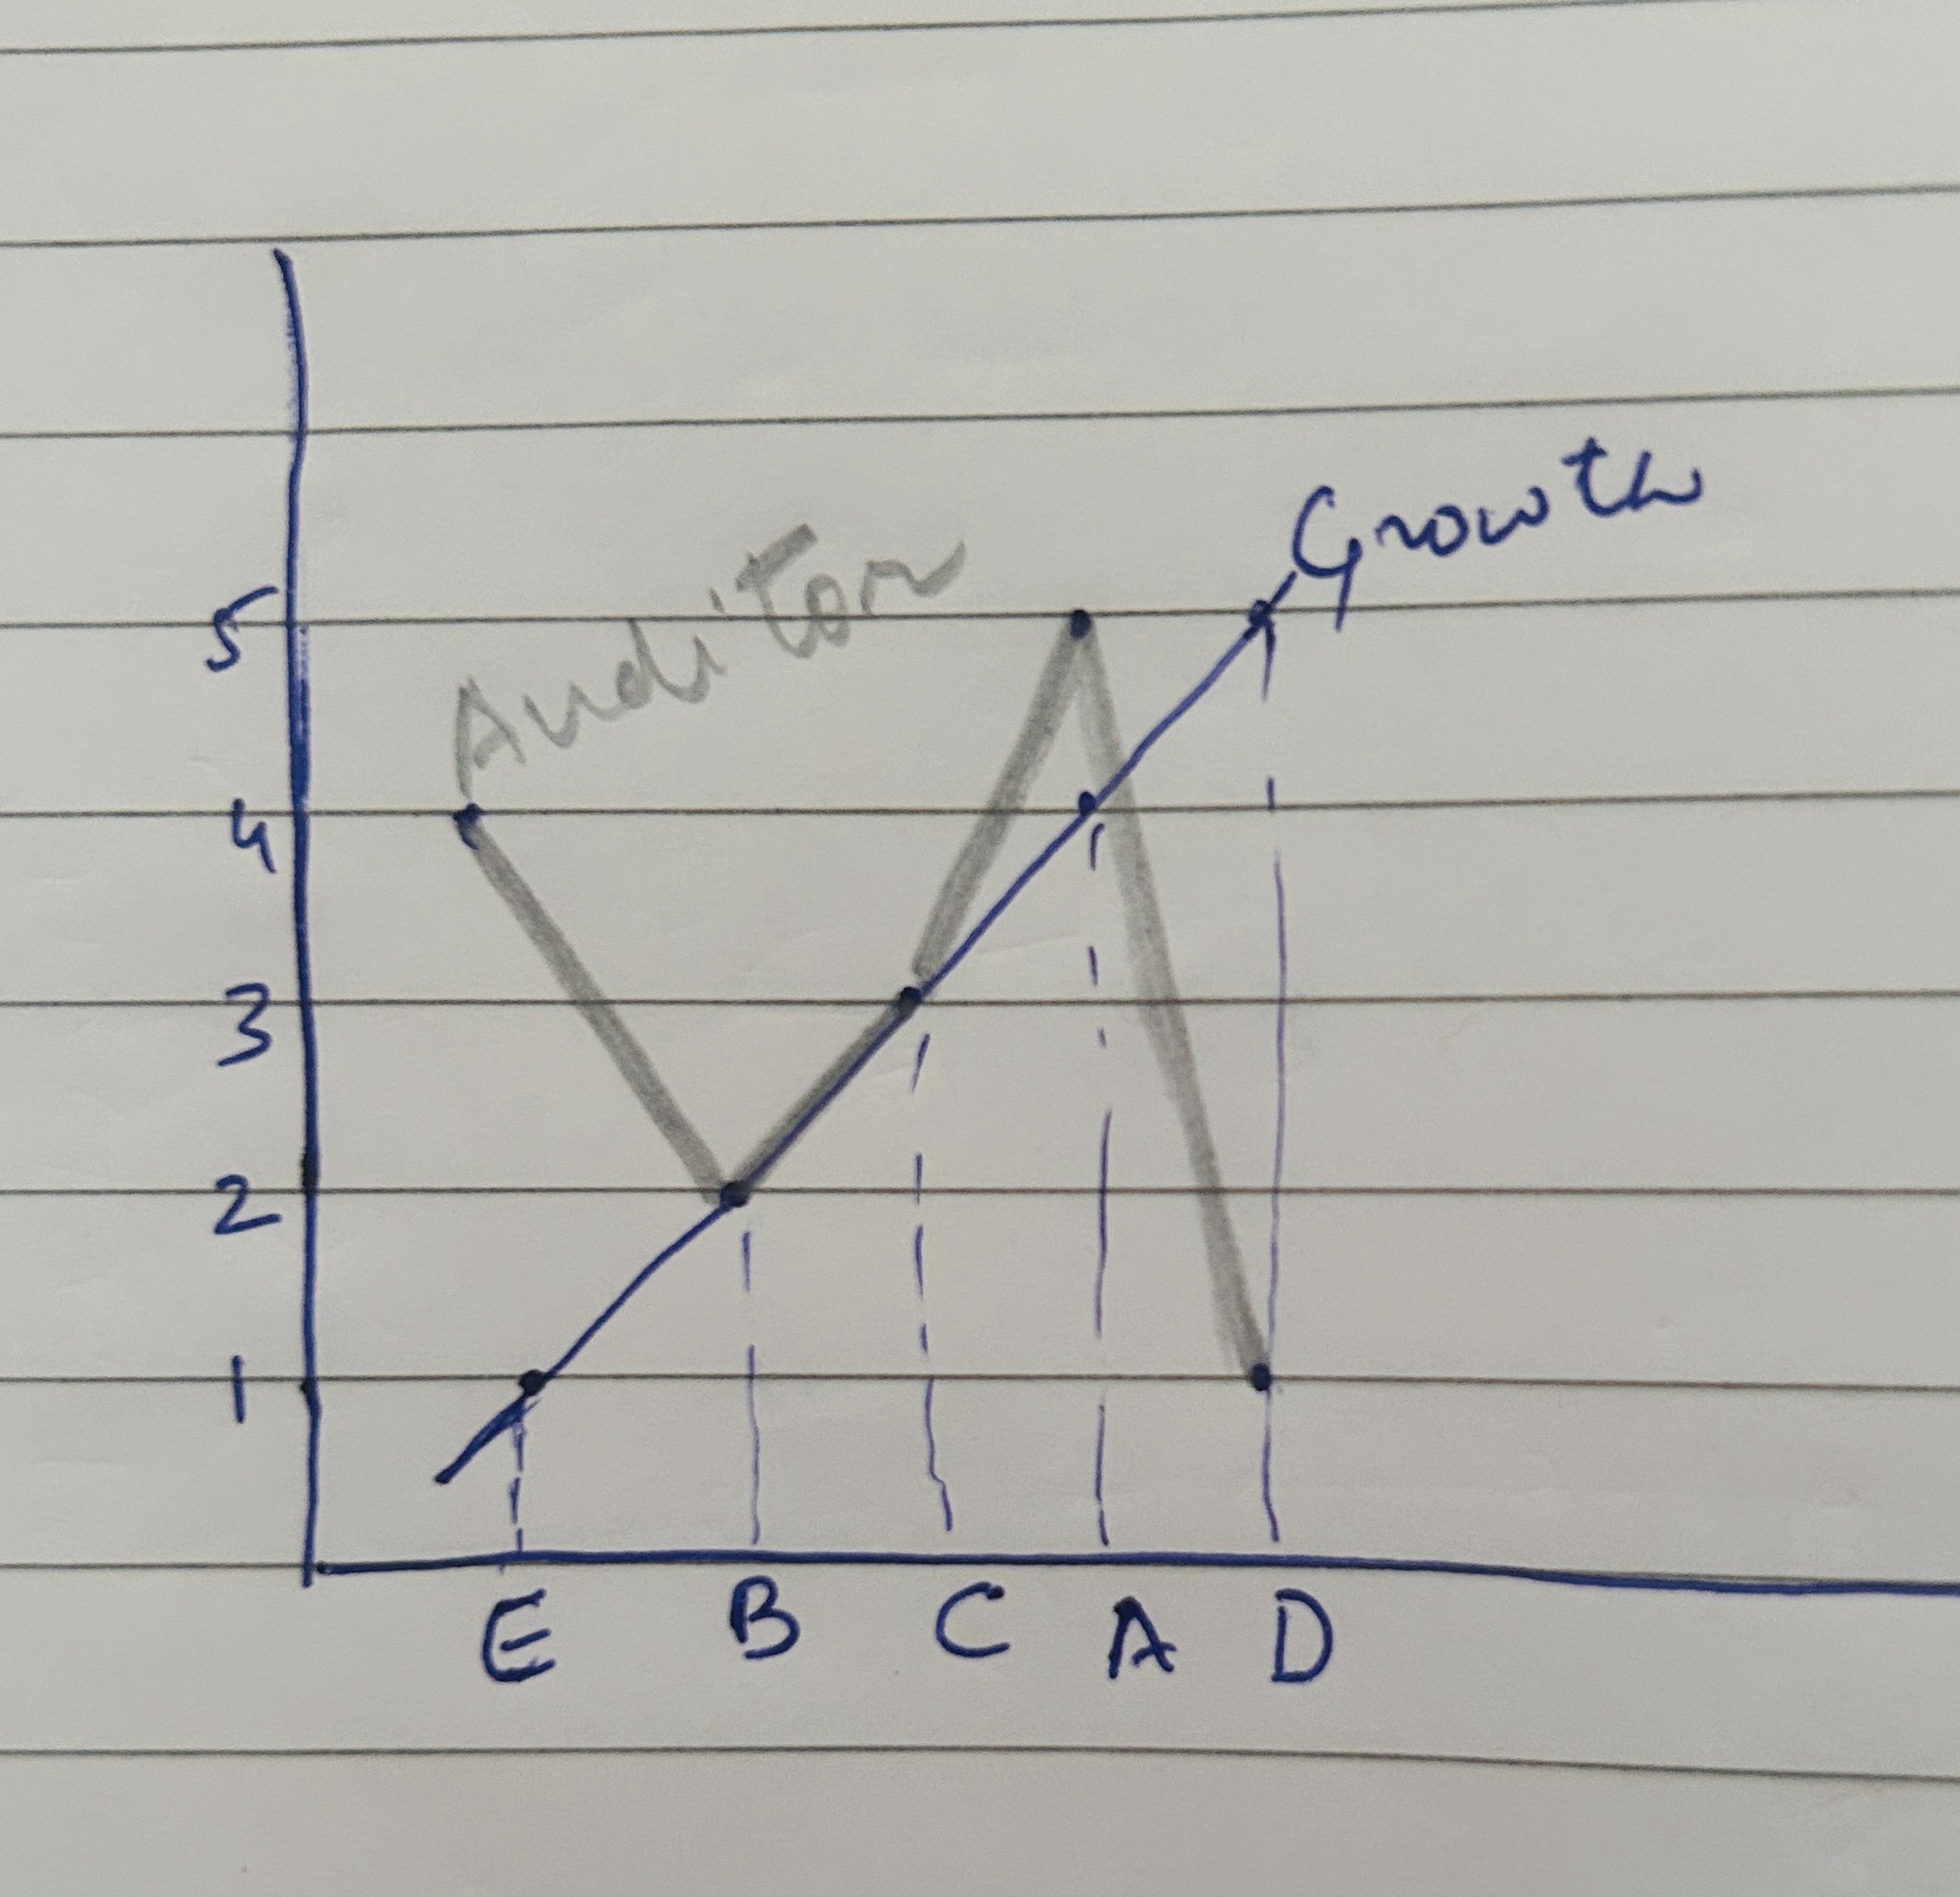 Growth
Auditor
5
4
3
2
1
E B C A D